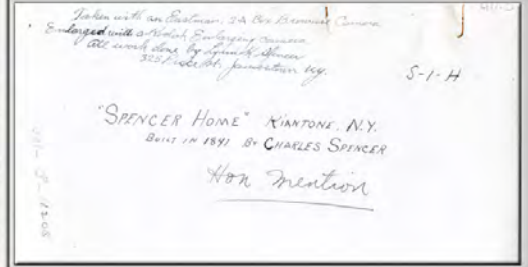 Taken with an Eastman, 2A Box Brownie Camera
Enlarged with a Kodak Enlarging camera
All work done by Lynn H. Spencer
325 St. Jamestown Ny.
S-1-H
"SPENCER HOME" KIANTONE, N.Y.
BUILT IN 1841 BY CHARLES SPENCER
Hon Mention